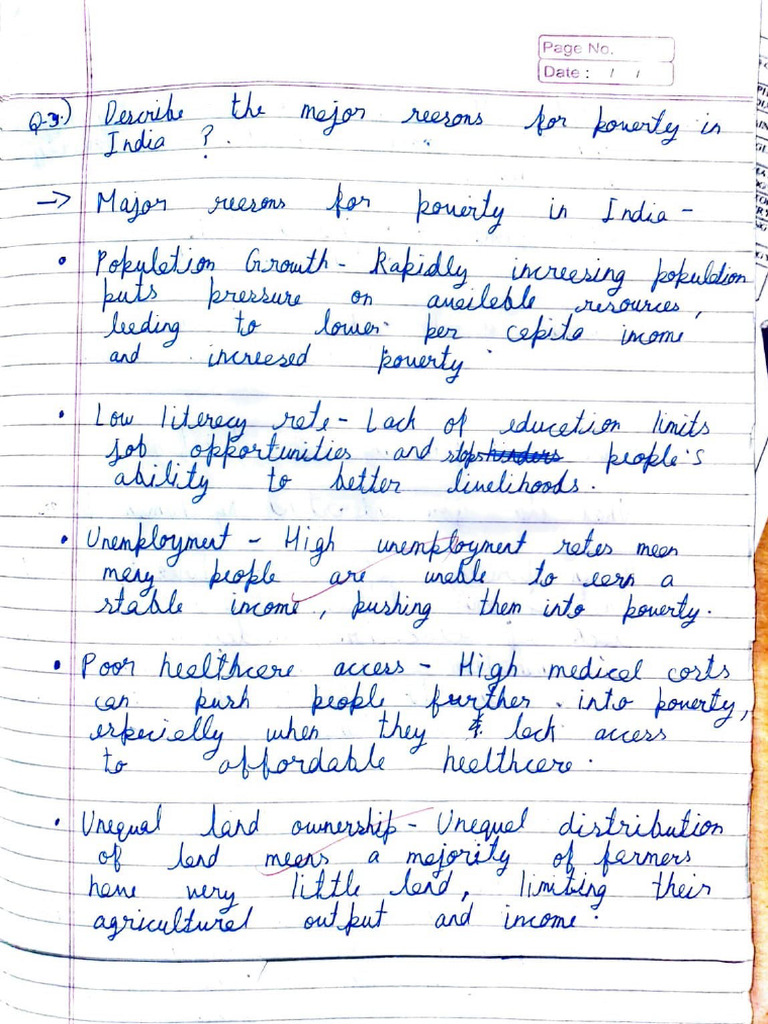 Page No.
Date : / /
Q.3.) Describe the major reasons for poverty in
India ?
→ Major reasons for poverty in India -
• Population Growth - Rapidly increasing population
puts pressure on available resources,
leading to lower per capita income
and increased poverty.
• Low literacy rate - Lack of education limits
job opportunities and stops people's
ability to better livelihoods.
• Unemployment - High unemployment rates mean
many people are unable to earn a
stable income, pushing them into poverty.
• Poor healthcare access - High medical costs
can push people further into poverty,
especially when they lack access
to affordable healthcare.
• Unequal land ownership - Unequal distribution
of land means a majority of farmers
have very little land, limiting their
agricultural output and income.